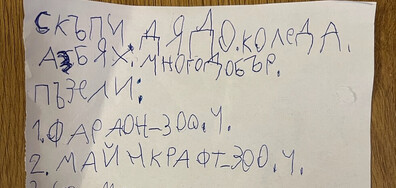 СКЪПИ ДЯДО.КОЛЕДА.
АЗ БЯХ. МНОГО ДОБЪР.
ПЪЗЕЛИ:
1. ФАРАОН-300.Ч.
2. МАЙНКРАФТ-300.Ч.